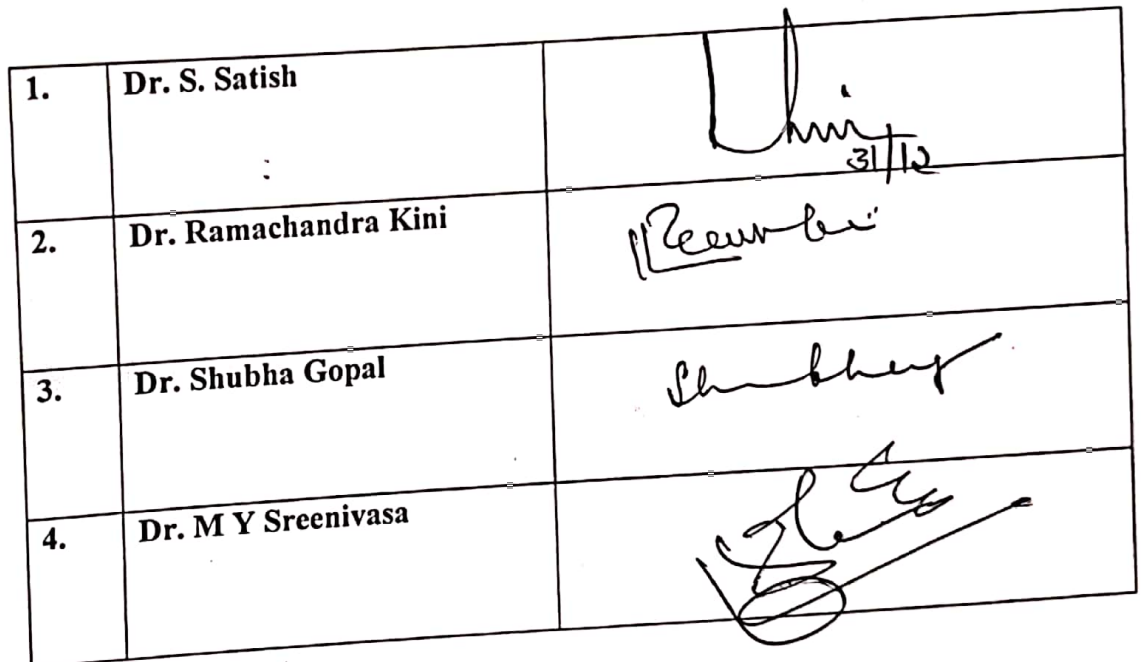 1. Dr. S. Satish
31/12
2. Dr. Ramachandra Kini
3. Dr. Shubha Gopal
4. Dr. M Y Sreenivasa